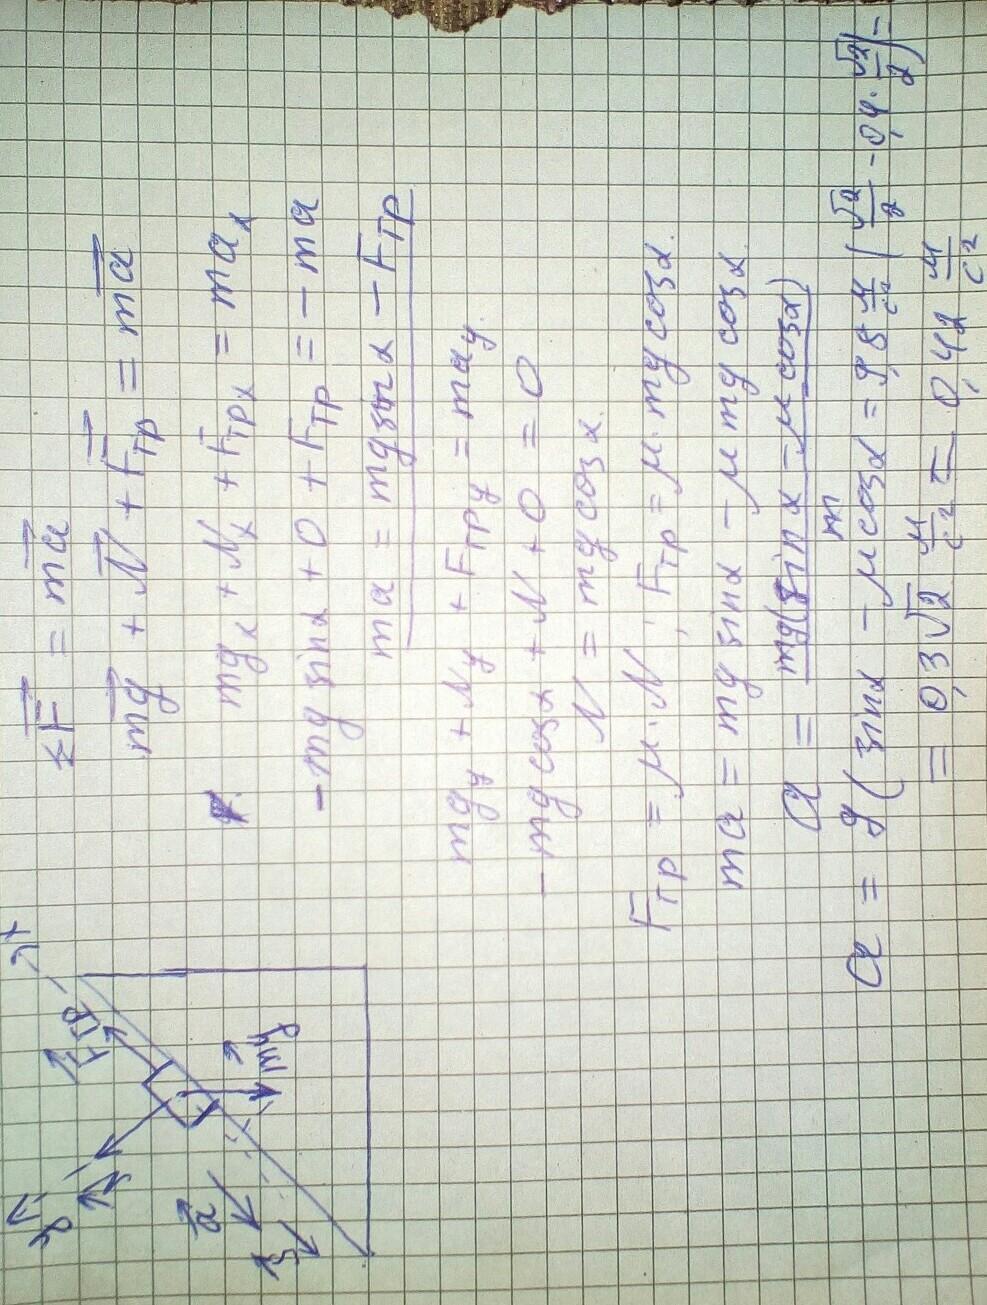 ΣF⃗ = ma⃗
mg⃗ + N⃗ + F⃗тр = ma⃗
mgₓ + Nₓ + Fтрₓ = maₓ
-mg sinα + 0 + Fтр = -ma
ma = mg sinα - Fтр
mgᵧ + Nᵧ + Fтрᵧ = maᵧ
-mg cosα + N + 0 = 0
N = mg cosα.
Fтр = μ·N; Fтр = μ·mg cosα.
ma = mg sinα - μ mg cosα
a = mg(sinα - μ cosα)/m
a = g(sinα - μ cosα = 9,8 м/с² (√2/2 - 0,4·√2/2) =
= 0,3√2 м/с² = 0,42 м/с²
y
N⃗
F⃗тр
x
a⃗
mg⃗